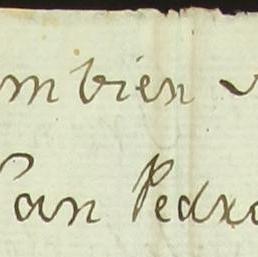 mbien
San Pedro